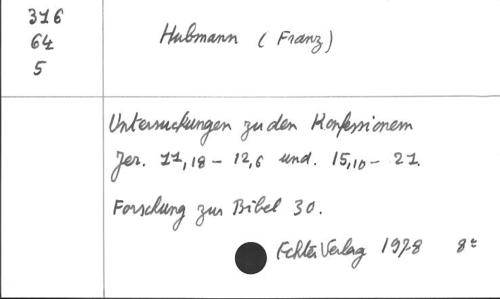 316
64
5
Hubmann (Franz)
Untersuchungen zu den Konfessionem
Jer. 11,18 - 12,6 und. 15,10 - 21.
Forschung zur Bibel 30.
Echter Verlag 1978 8º